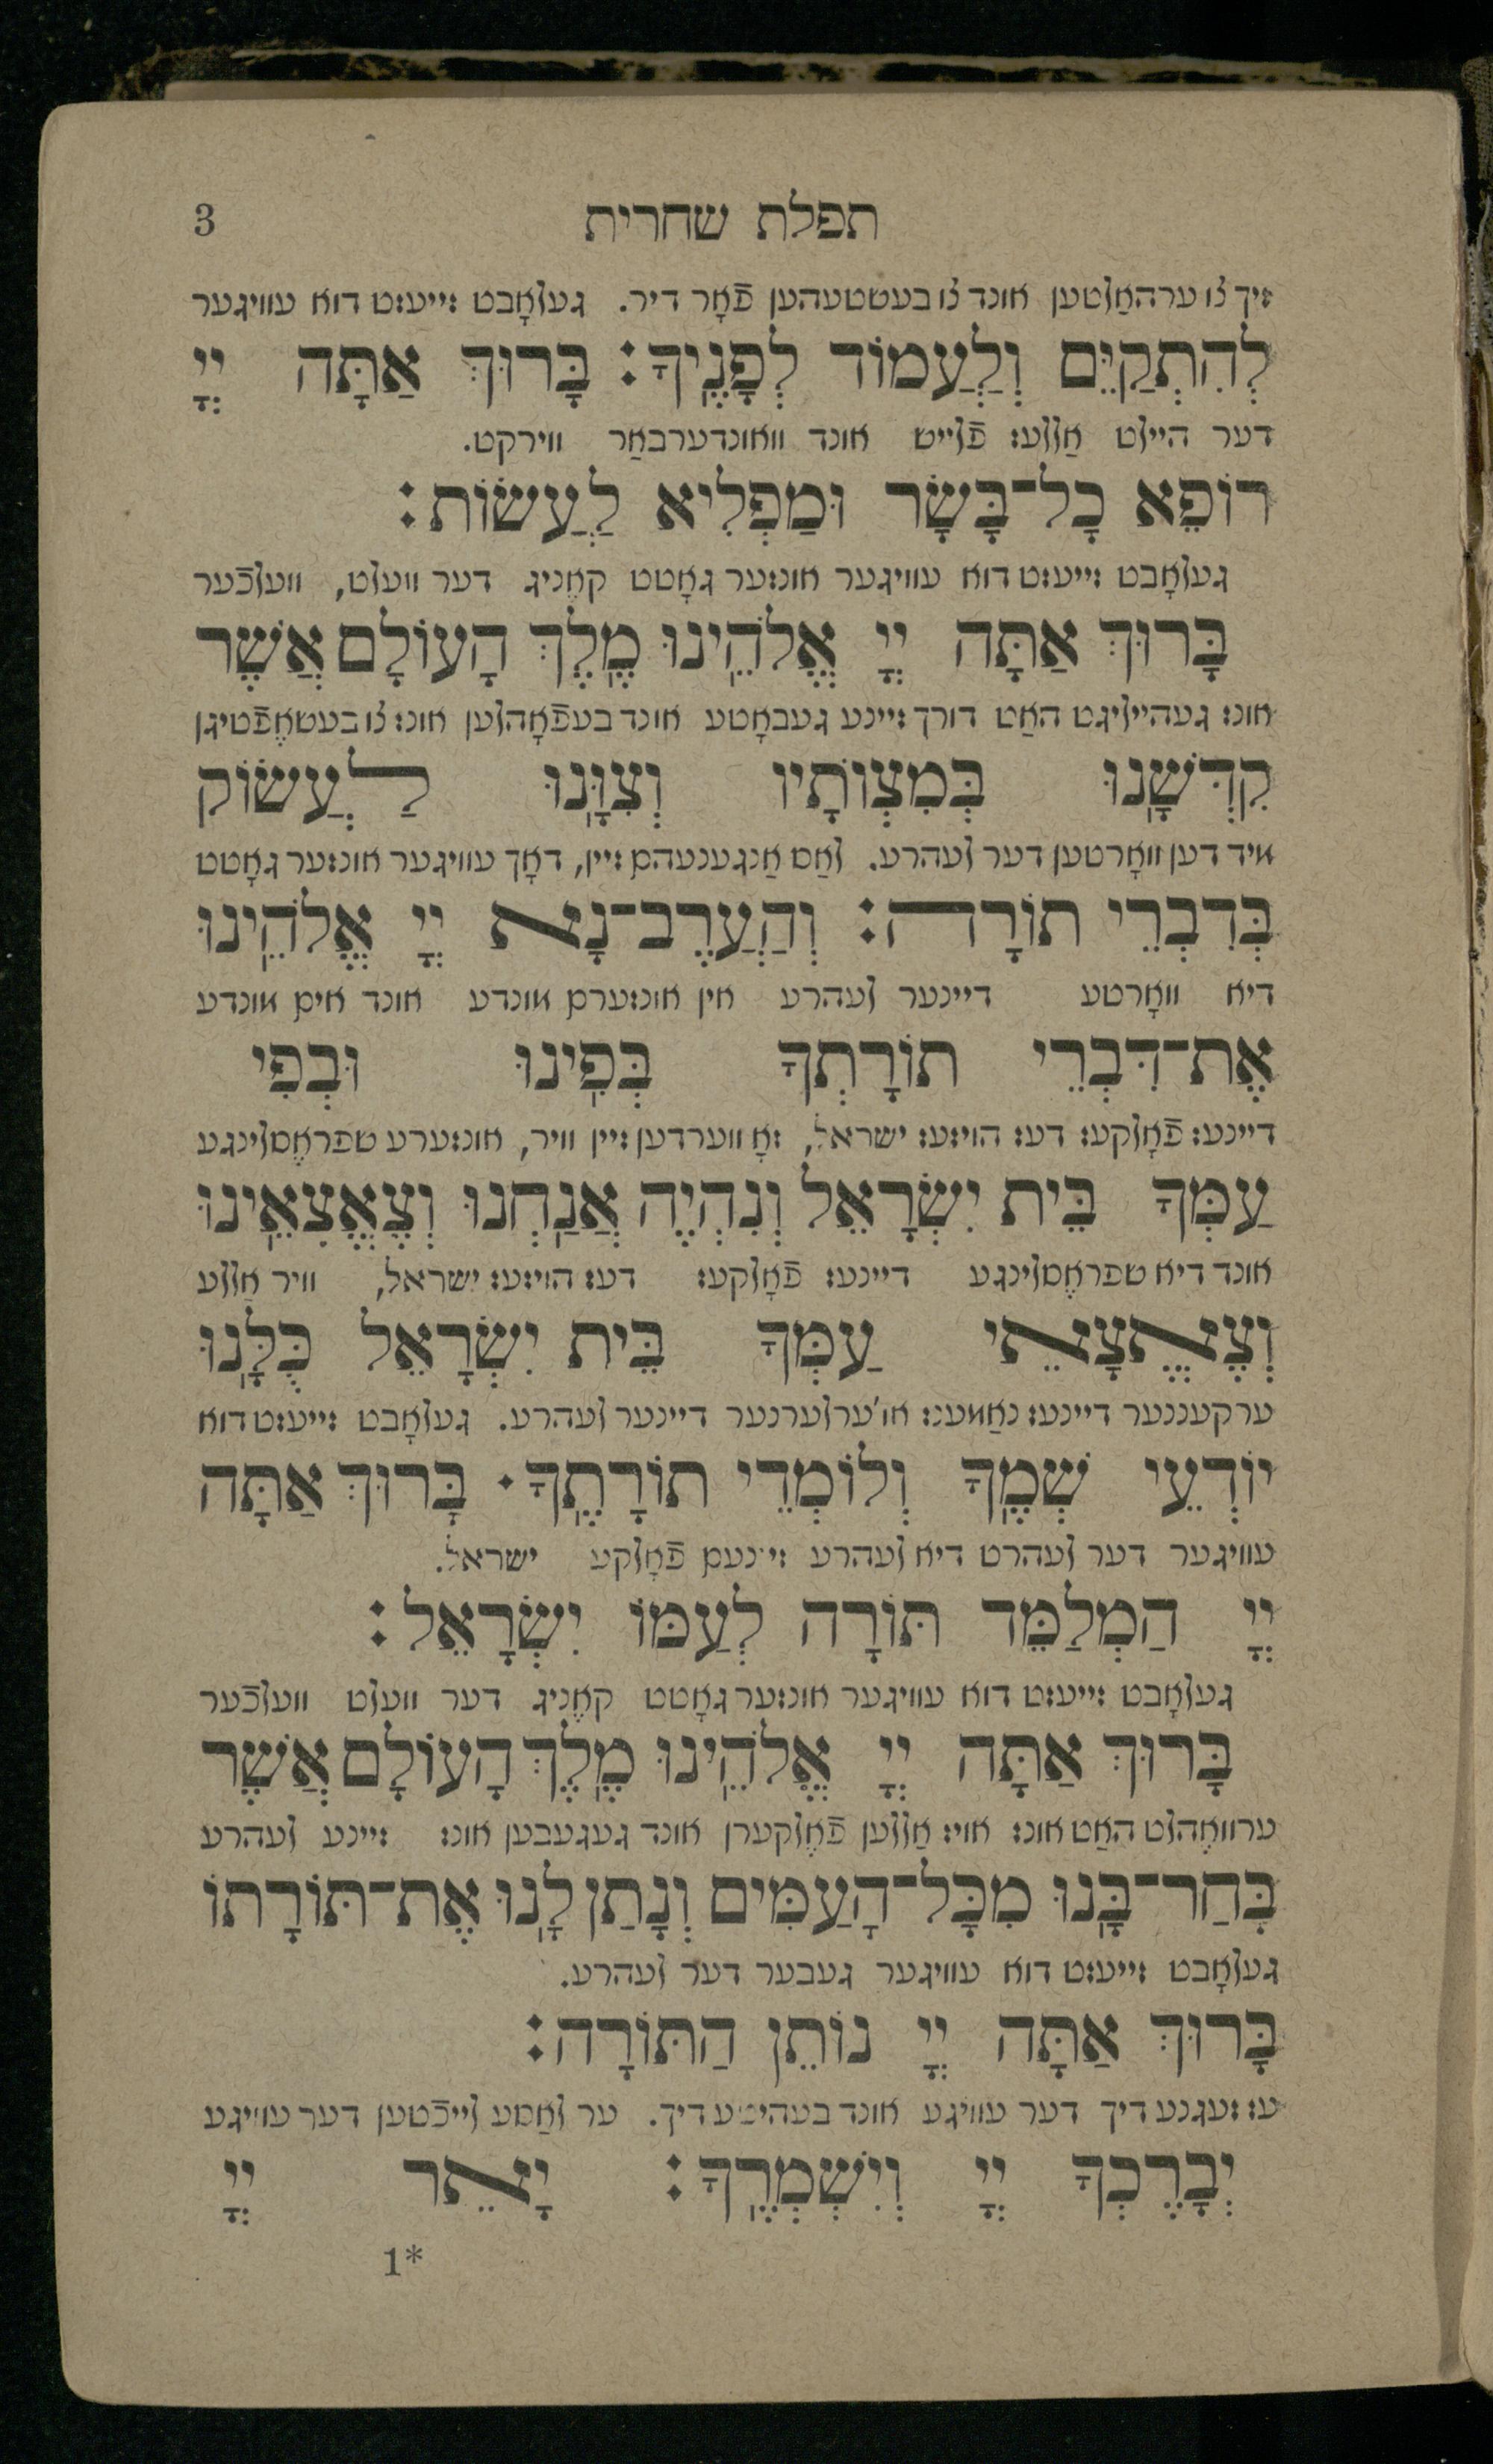 תפלת שחרית 3
זיך צו ערהאַלטען אונד צו בעשטעהען פֿאָר דיר. געלאָבט זייעזט דוא עוויגער
לְהִתְקַיֵּם וְלַעֲמוֹד לְפָנֶיךָ: בָּרוּךְ אַתָּה יְיָ
דער היילט אַללעז פֿלייש אונד וואונדערבאַר ווירקט.
רוֹפֵא כָל־בָּשָׂר וּמַפְלִיא לַעֲשׂוֹת:
געלאָבט זייעזט דוא עוויגער אונזער גאָטט קאֶניג דער וועלט, וועלכֿער
בָּרוּךְ אַתָּה יְיָ אֱלֹהֵינוּ מֶלֶךְ הָעוֹלָם אֲשֶׁר
אונז געהייליגט האַט דורך זיינע געבאָטע אונד בעפֿאָהלען אונז צו בעשאֶפֿטיגן
קִדְּשָׁנוּ בְּמִצְוֹתָיו וְצִוָּנוּ לַעֲשׂוֹק
מיד דען וואָרטען דער לעהרע. לאַס אַנגענעהם זיין, דאָך עוויגער אונזער גאָטט
בְּדִבְרֵי תוֹרָה: וְהַעֲרֶב־נָא יְיָ אֱלֹהֵינוּ
דיא וואָרטע דיינער לעהרע אין אונזערם מונדע אונד אים מונדע
אֶת־דִּבְרֵי תוֹרָתְךָ בְּפִינוּ וּבְפִי
דיינעז פֿאָלקעז דעז הויזעז ישראל, זאָ ווערדען זיין וויר, אונזערע שפראֶסלינגע
עַמְּךָ בֵּית יִשְׂרָאֵל וְנִהְיֶה אֲנַחְנוּ וְצֶאֱצָאֵינוּ
אונד דיא שפראֶסלינגע דיינעז פֿאָלקעז דעז הויזעז ישראל, וויר אַללע
וְצֶאֱצָאֵי עַמְּךָ בֵּית יִשְׂרָאֵל כֻּלָּנוּ
ערקעננער דיינעז נאַמענז או'ערלערנער דיינער לעהרע. געלאָבט זייעזט דוא
יוֹדְעֵי שְׁמֶךָ וְלוֹמְדֵי תוֹרָתֶךָ. בָּרוּךְ אַתָּה
עוויגער דער לעהרט דיא לעהרע זיינעם פֿאָלקע ישראל.
יְיָ הַמְלַמֵּד תּוֹרָה לְעַמּוֹ יִשְׂרָאֵל:
געלאָבט זייעזט דוא עוויגער אונזער גאָטט קאֶניג דער וועלט וועלכֿער
בָּרוּךְ אַתָּה יְיָ אֱלֹהֵינוּ מֶלֶךְ הָעוֹלָם אֲשֶׁר
ערוואֶהלט האַט אונז אויז אַללען פֿאֶלקערן אונד געגעבען אונז זיינע לעהרע
בָּחַר־בָּנוּ מִכָּל־הָעַמִּים וְנָתַן לָנוּ אֶת־תּוֹרָתוֹ
געלאָבט זייעזט דוא עוויגער געבער דער לעהרע.
בָּרוּךְ אַתָּה יְיָ נוֹתֵן הַתּוֹרָה:
עז זעגנע דיך דער עוויגע אונד בעהיטע דיך. ער לאַסע לייכֿטען דער עוויגע
יְבָרֶכְךָ יְיָ וְיִשְׁמְרֶךָ: יָאֵר יְיָ
1*